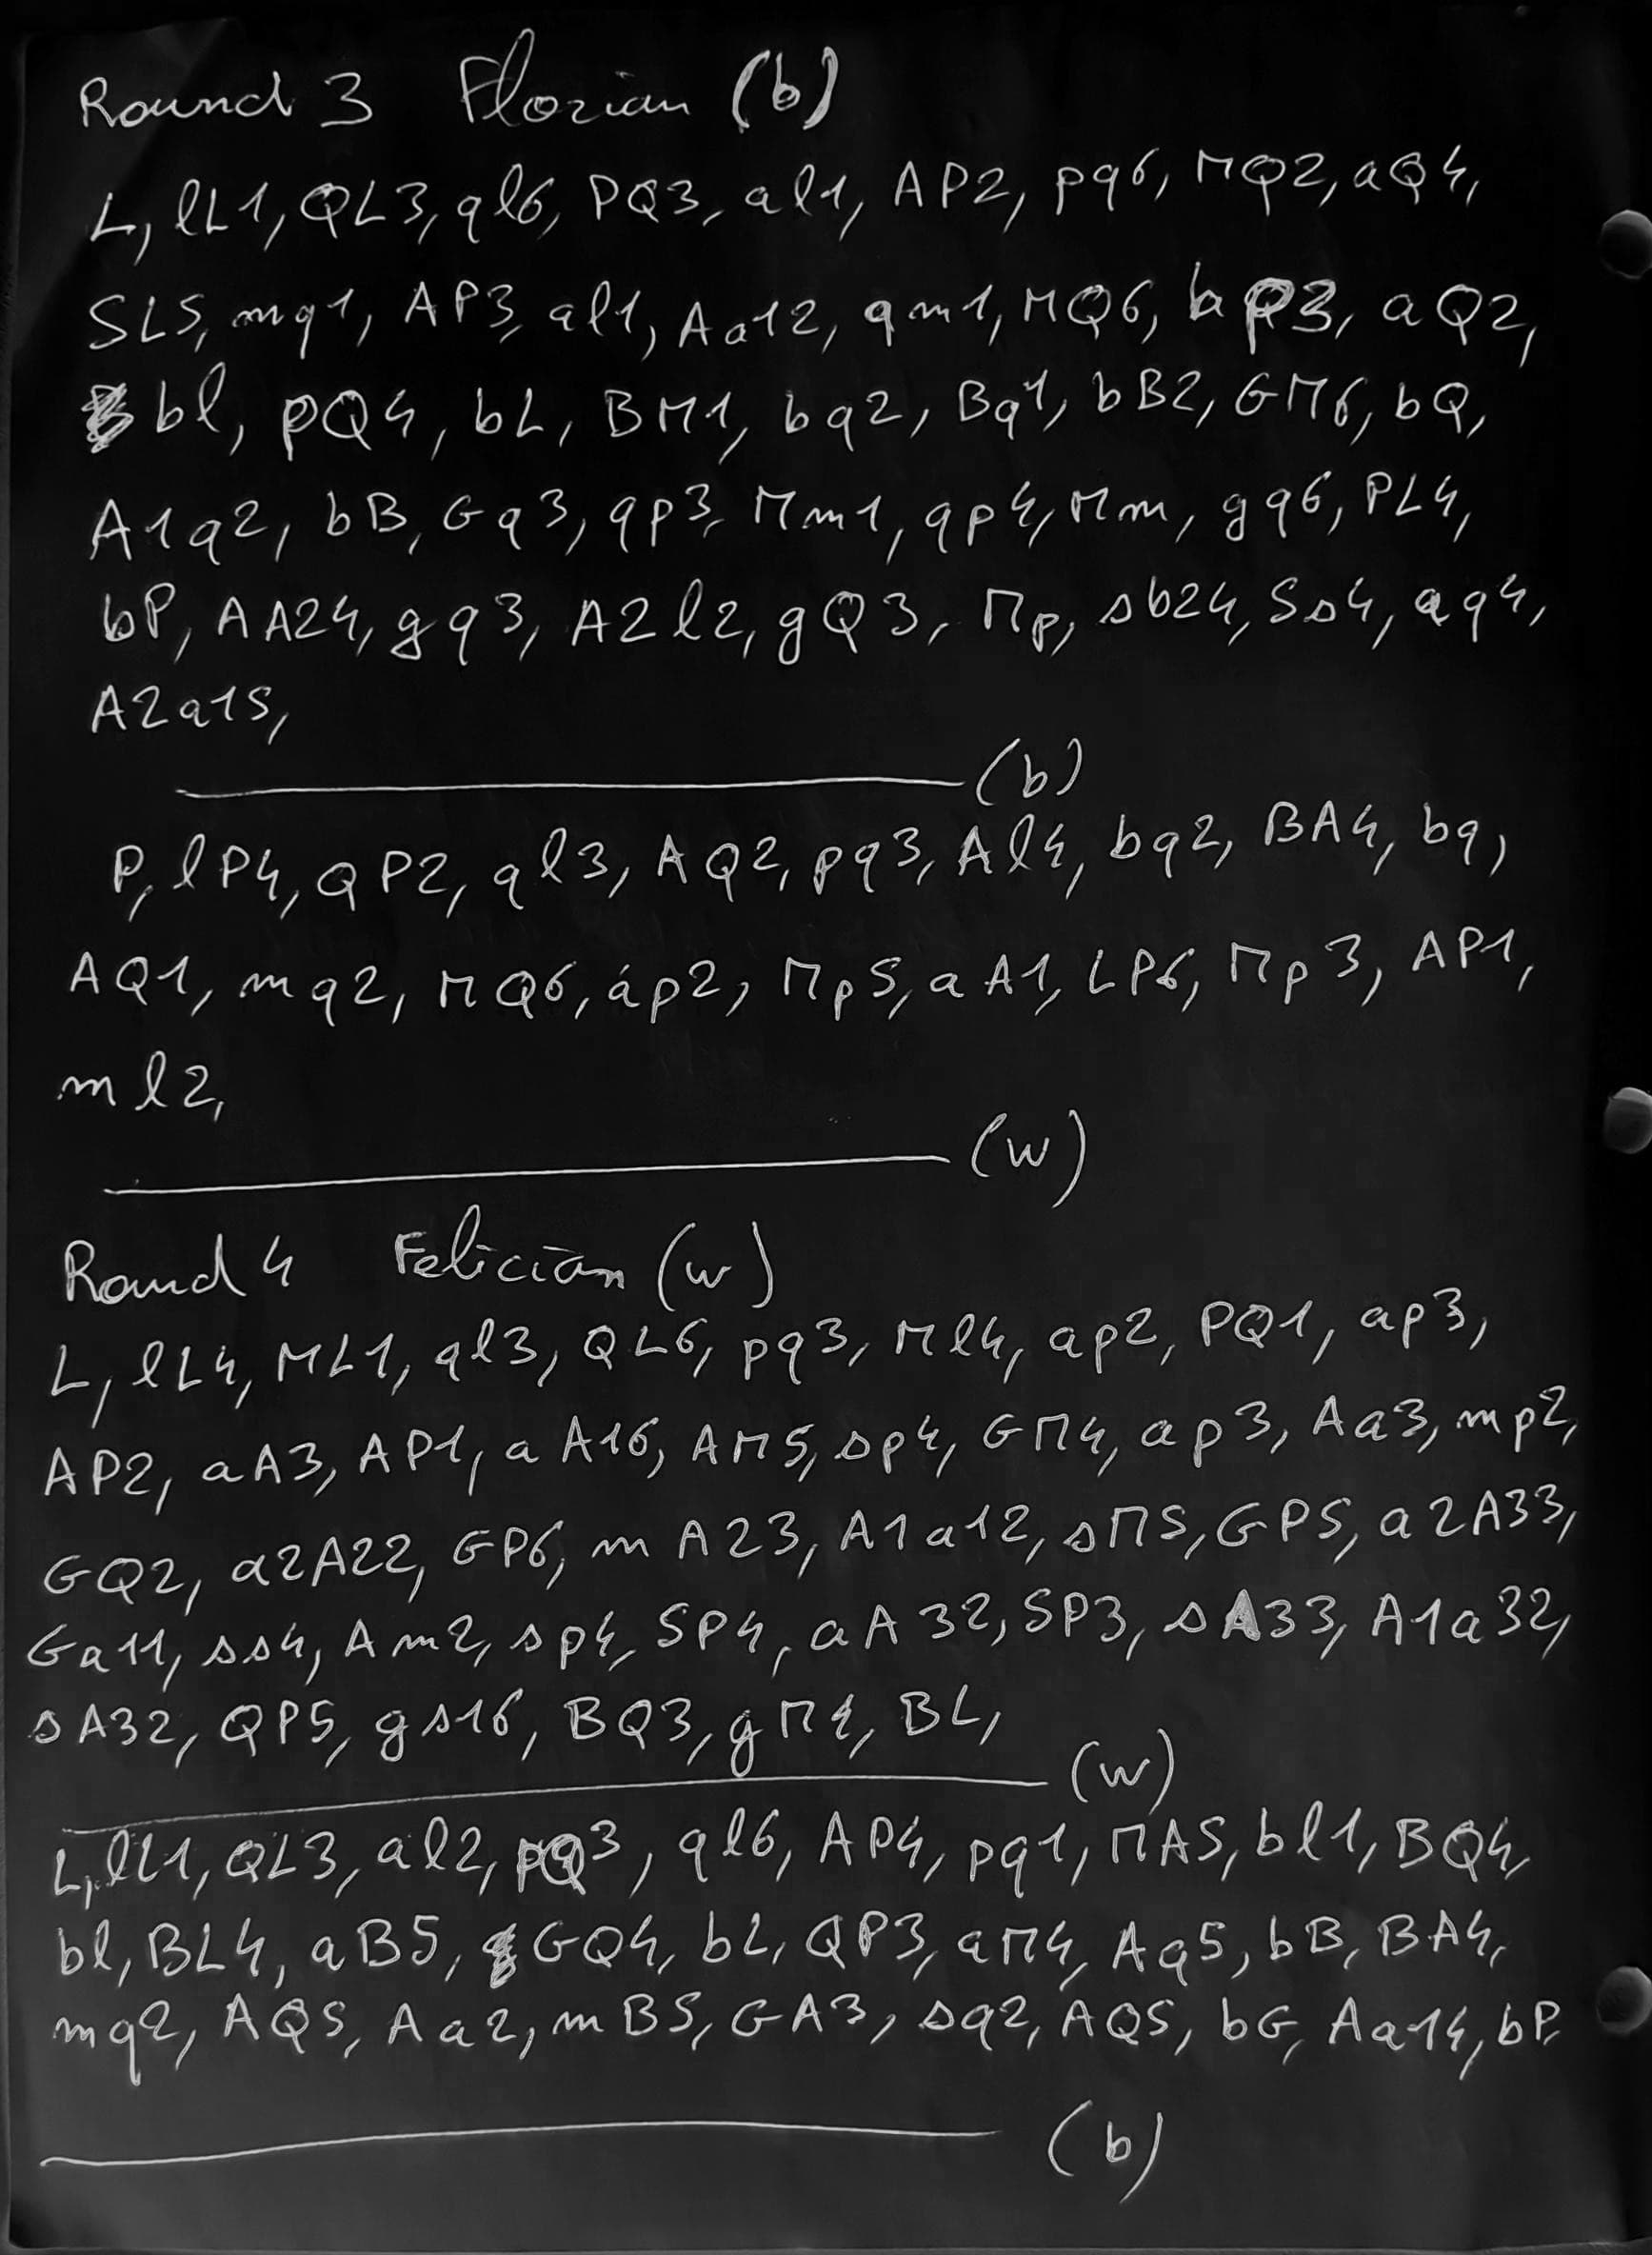 Round 3 Florian (b)
L, lL1, QL3, ql6, PQ3, al1, AP2, pq6, MQ2, aQ4,
SL5, mq1, AP3, al1, Aa12, qm1, MQ6, bp3, aQ2,
bl, pQ4, bL, BM1, bq2, Bq1, bB2, GM6, bQ,
A1q2, bB, Gq3, qp3, Mm1, qp4, Mm, gq6, PL4,
bP, AA24, gq3, A2l2, gQ3, Mp, sb24, Ss4, aq4,
A2a15,
(b)
P, lP4, QP2, ql3, AQ2, pq3, Al4, bq2, BA4, bq,
AQ1, mq2, MQ6, ap2, Mp5, aA1, LP6, Mp3, AP1,
ml2,
(w)
Round 4 Felician (w)
L, lL4, ML1, ql3, QL6, pq3, Ml4, ap2, PQ1, ap3,
AP2, aA3, AP1, aA16, AM5, sp4, GM4, ap3, Aa3, mp2,
GQ2, a2A22, GP6, mA23, A1a12, sM5, GP5, a2A33,
Ga11, ss4, Am2, sp4, SP4, aA32, SP3, sA33, A1a32,
sA32, QP5, gs16, BQ3, gM4, BL,
(w)
L, lL1, QL3, al2, pQ3, ql6, AP4, pq1, MA5, bl1, BQ4,
bl, BL4, aB5, GQ4, bL, QP3, aM4, Aq5, bB, BA4,
mq2, AQ5, Aa2, mB5, GA3, sq2, AQ5, bG, Aa14, bP.
(b)